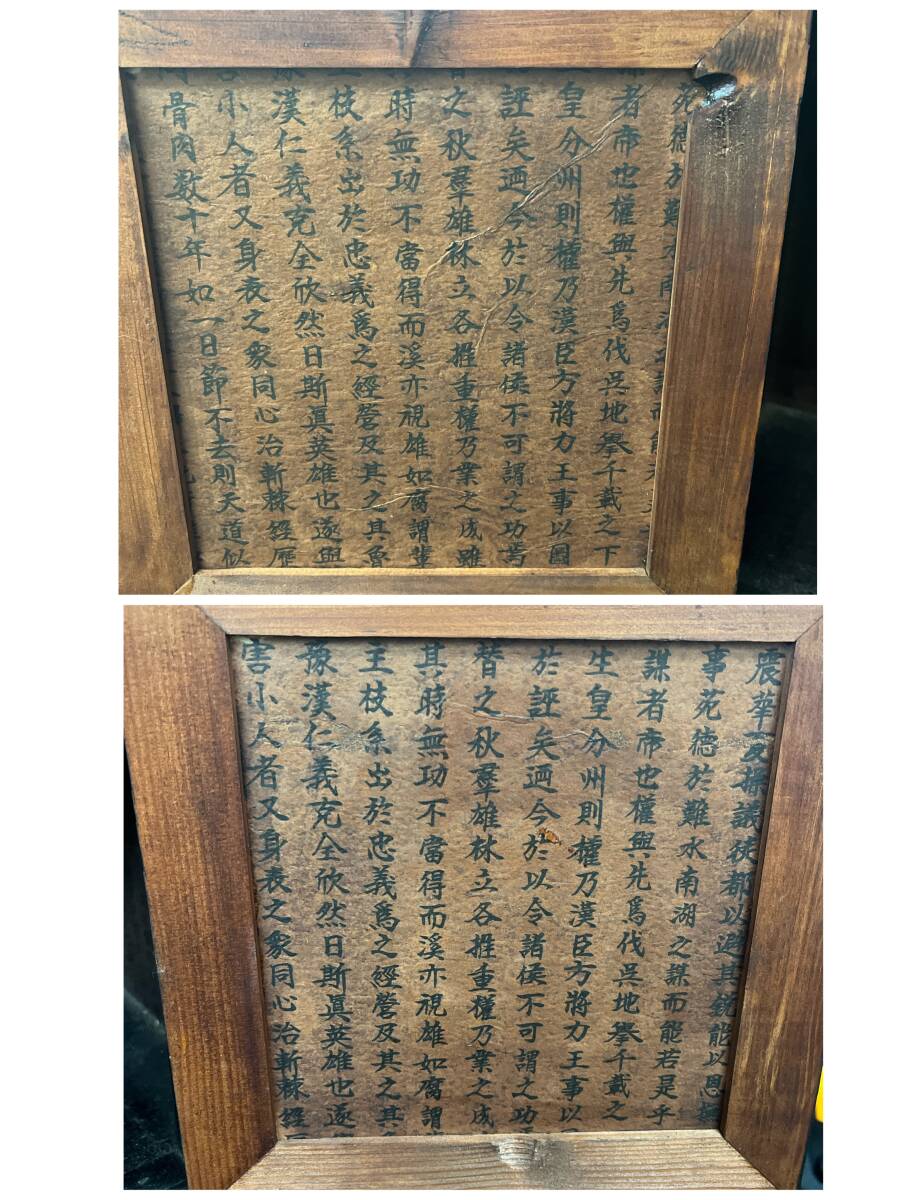 苑德於難水南
者帝也權興先爲伐呉地擧千載之下
皇分州則權乃漢臣方將力王事以圖
誣矣迺今於以令諸侯不可謂之功焉
之秋羣雄林立各推重權乃業之成雖
時無功不當得而溪亦視雄如腐謂輩
枝系出於忠義爲之經營及其之其魯
漢仁義充全欣然日斯眞英雄也遂與
小人者又身表之衆同心治斬棘經歴
骨肉数十年如一日節不去則天道似
震華 操議徒都以避其鋭能以恩
事苑德於難水南湖之謀而能若是乎
謀者帝也權興先爲伐呉地擧千載之
生皇分州則權乃漢臣方將力王事以
於誣矣迺今於以令諸侯不可謂之功
替之秋羣雄林立各推重權乃業之成
其時無功不當得而溪亦視雄如腐謂
主枝系出於忠義爲之經營及其之其
豫漢仁義充全欣然日斯眞英雄也遂
害小人者又身表之衆同心治斬棘經